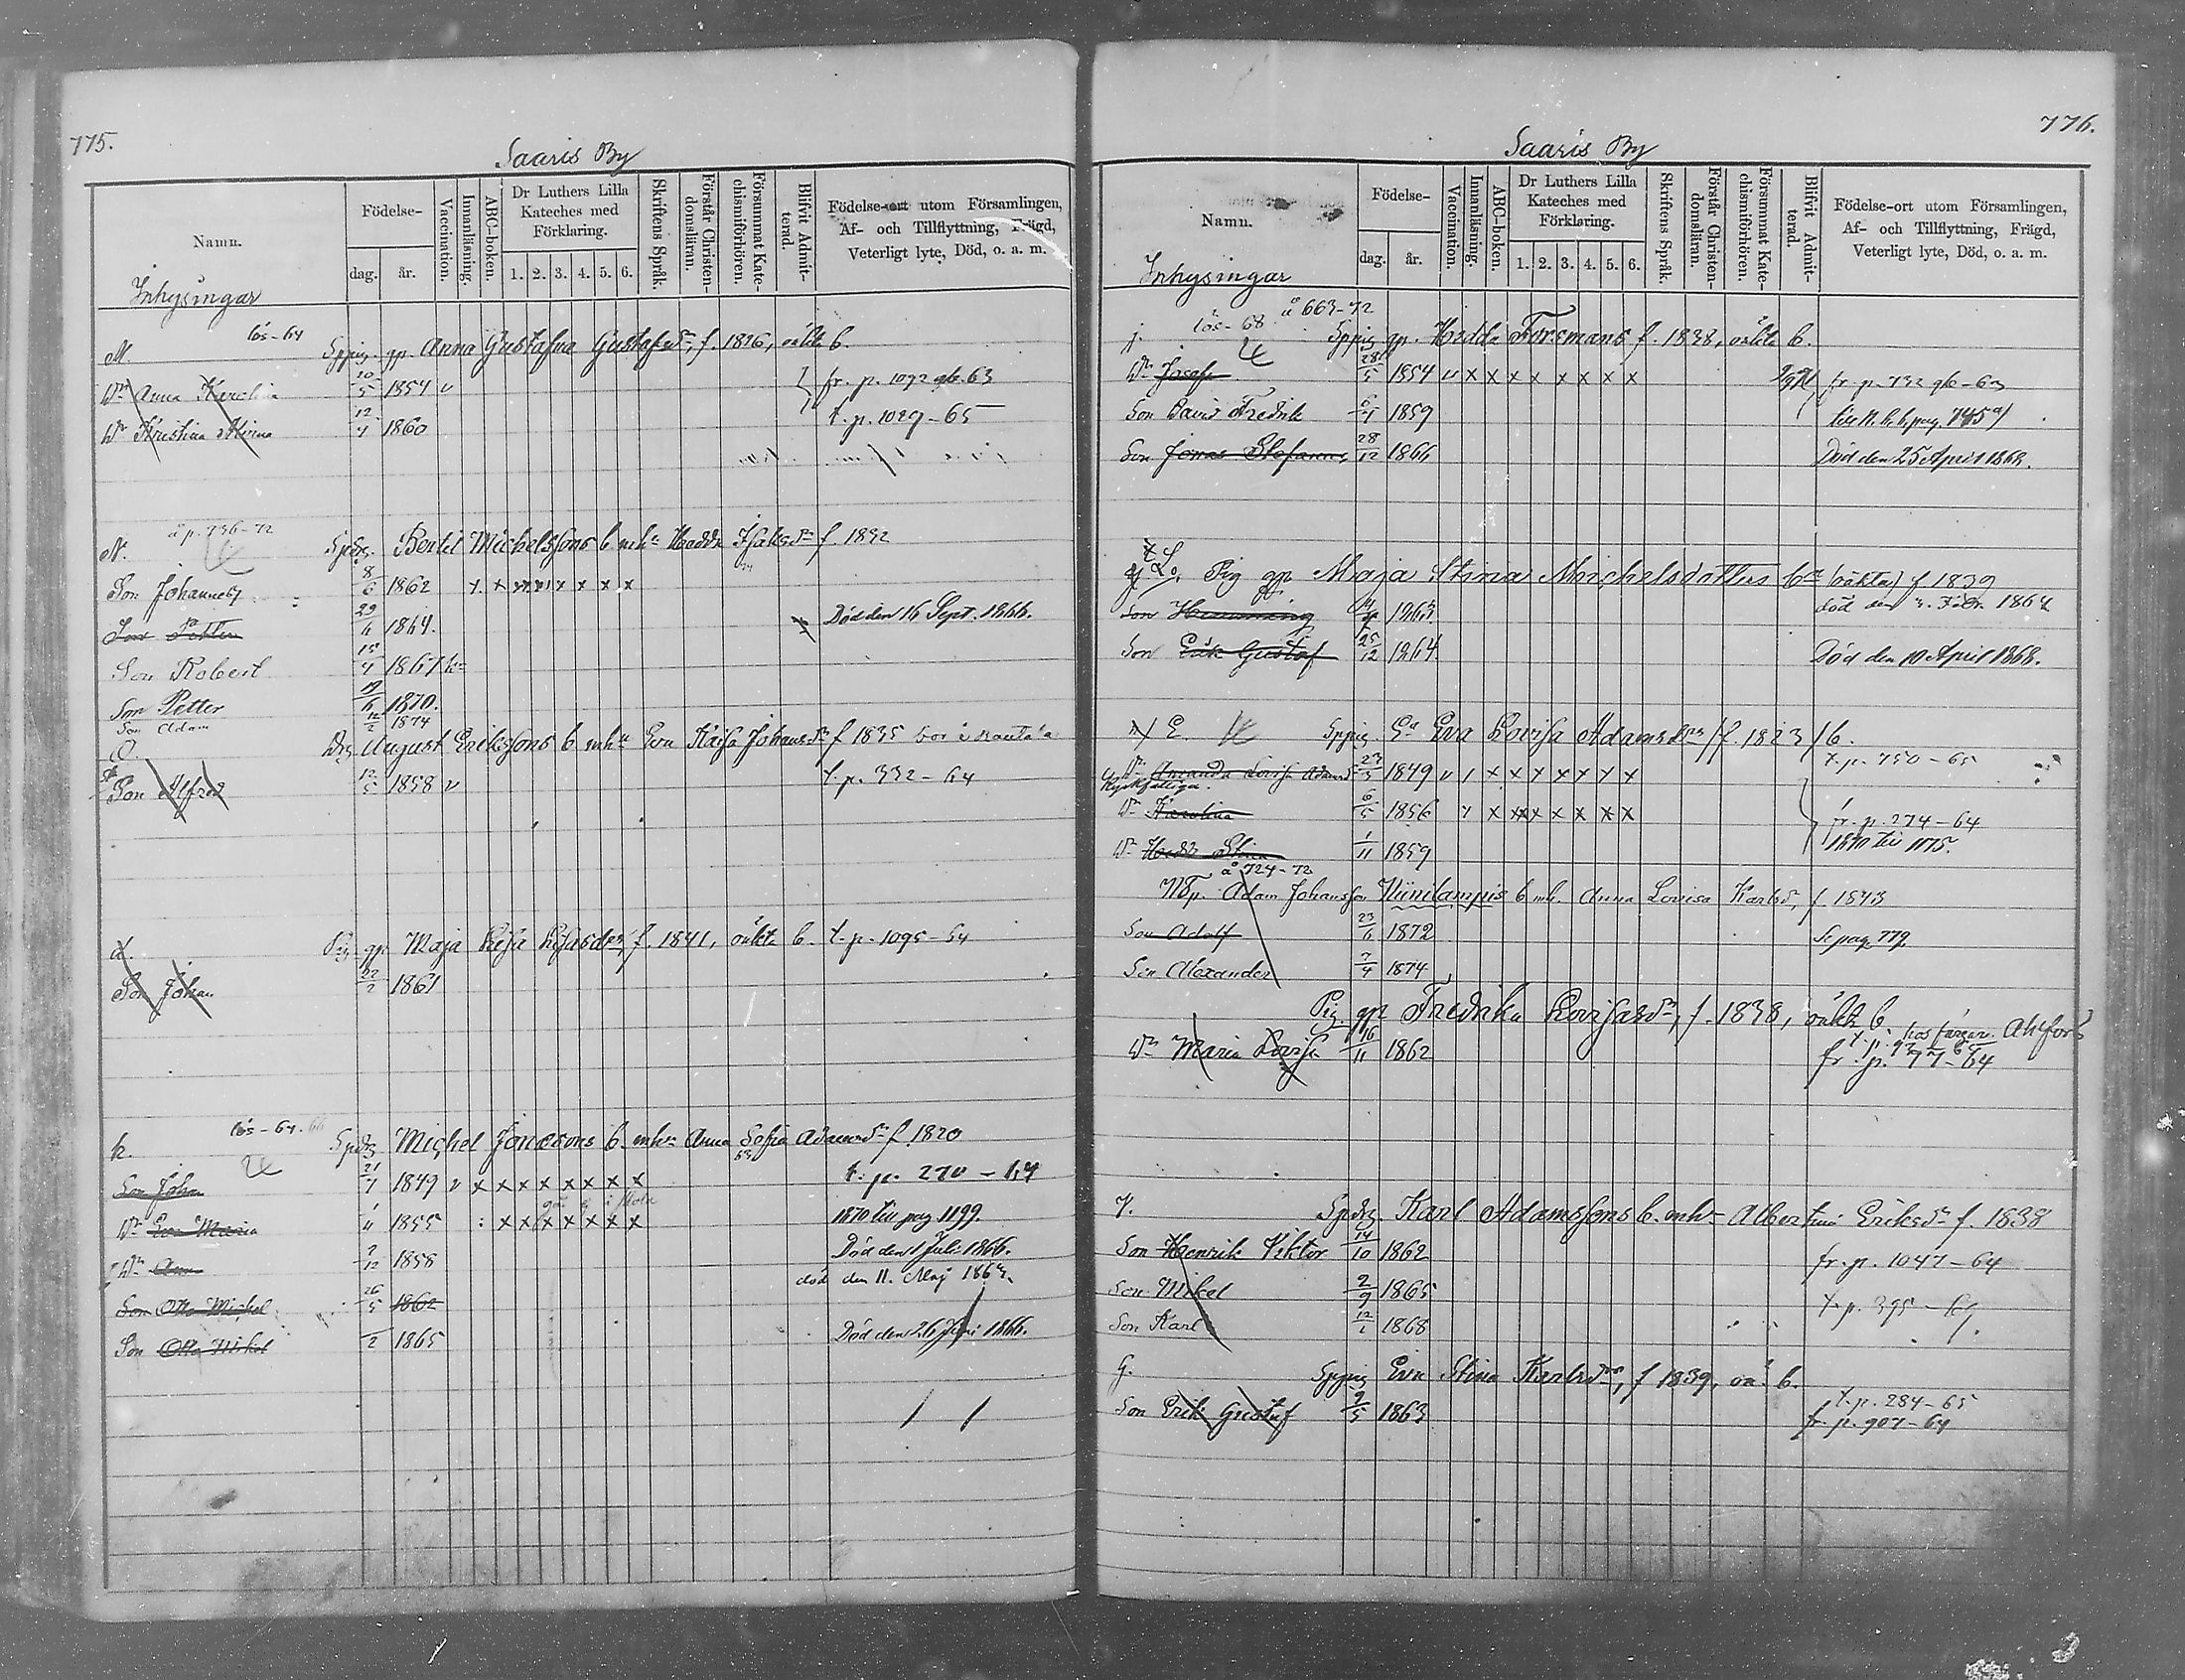 775.
Saaris By
Namn.
Födelse-
dag. år.
Vaccination.
Innanläsning.
ABC-boken.
Dr Luthers Lilla
Kateches med
Förklaring.
1. 2. 3. 4. 5. 6.
Skriftens Språk.
Förstår Christen-
domsläran.
Försummat Kate-
chismiförhören.
Blifvit Admit-
terad.
Födelse-ort utom Församlingen,
Af- och Tillflyttning, Frägd,
Veterligt lyte, Död, o. a. m.
Inhysingar
lös-64
M. Sppig. gp. Anna Gustafva Gustafsdr, f. 1826, oäkta b.
Dr Anna Karolina 10/5 1854 v fr. p. 1092 gb. 63
Dr Kristina Mirina 12/7 1860 t. p. 1029-65
å p. 736-72
N. Spdrg. Bertil Michelssons b. mhu Hedda Isaksdr f. 1832
Son Johannes 8/6 1862 x x x x x x x
Son Petter 29/6 1864. Död den 16 Sept. 1866.
Son Robert 15/7 1867
Son Petter 19/6 1870.
Son Adam 12/2 1874
O. Drg August Erikssons b. mhu Eva Kaisa Johansdr f. 1835 bor i
Son Alfred 12/5 1858 v t. p. 332-64
Pig gp. Maja Lisa Lisasdr, f. 1841, oäkta b. t. p. 1095-64
Son Johan 22/2 1861
lös-64. 66
k. Spdrg Michel Jonæsons b. mhu Anna Sofia Adamsdr f. 1820
Son Johan 21/7 1849 v x x x x x x x x t. p. 270-64
Dr Eva Maria 1/11 1855 x x x x x x x 1870 till pag 1199.
Dr Anna 2/12 1858 Död den 1 Juli 1866.
död den 11. Maj 1863.
Son Otto Michel 26/5 1862
Son Otto Mikel /2 1865 Död den 26 Juni 1866.
776.
Saaris By
Namn.
Födelse-
dag. år.
Vaccination.
Innanläsning.
ABC-boken.
Dr Luthers Lilla
Kateches med
Förklaring.
1. 2. 3. 4. 5. 6.
Skriftens Språk.
Förstår Christen-
domsläran.
Försummat Kate-
chismiförhören.
Blifvit Admit-
terad.
Födelse-ort utom Församlingen,
Af- och Tillflyttning, Frägd,
Veterligt lyte, Död, o. a. m.
Inhysingar
lös-68 å 663-72
j. Sppig gp. Hedda Forsmans f. 1838, oäkta b.
Dr Josefa 28/5 1854 v x x x x x x x x fr. p. 732 gb-63
Son David Fredrik 1859
Son Jonas Stefanus 28/12 1866 Död den 25 April 1868.
Lo. Pig gp. Maja Stina Michelsdotters bn (oäkta) f 1839
Son Hemming 1863 död den Febr. 1864
Son Erik Gustaf 25/12 1864 Död den 10 April 1868.
E. Sppig Ea Eva Lovisa Adamsdrs f. 1823 b.
Dr Amanda Lovisa Adamsdr 23/5 1849 x x x x x x x t. p. 750-65
Dr Karolina 6/5 1856 x x x x x x x fr. p. 274-64
Dr Hedda Stina 1/11 1859 1870 till 1175.
å 724-72
Adam Johansson Niinilampis b. mh. Anna Lovisa Karlsdr, f 1843
Son Adolf 23/6 1872 Se pag 779.
Son Alexander 7/4 1874
Pig gp Fredrika Lovisasdr, f. 1838, oäkta b. hos Ahlfors
Dr Maria Lovisa 16/11 1862 fr. p. 77-64
Y. Spdrg Karl Adamssons b. mhu Albertina Eriksdr f. 1838
Son Henrik Viktor 14/10 1862 fr. p. 1047-64
Son Mikel 2/9 1865 t. p. 395-69
Son Karl 12/1 1868
G. Sppig Eva Stina Karlsdrs, f 1839, oä. b.
t. p. 284-65
Son Erik Gustaf 9/5 1863 fr. p. 907-64